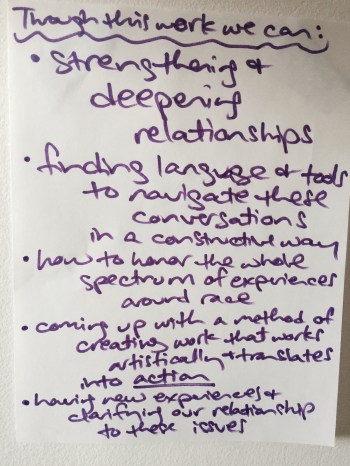 Through this work we can:
• strengthening &
deepening
relationships
• finding language & tools
to navigate these
conversations
in a constructive way
• how to honor the whole
spectrum of experiences
around race
• coming up with a method of
creating work that works
artistically + translates
into action
• having new experiences &
clarifying our relationship
to these issues